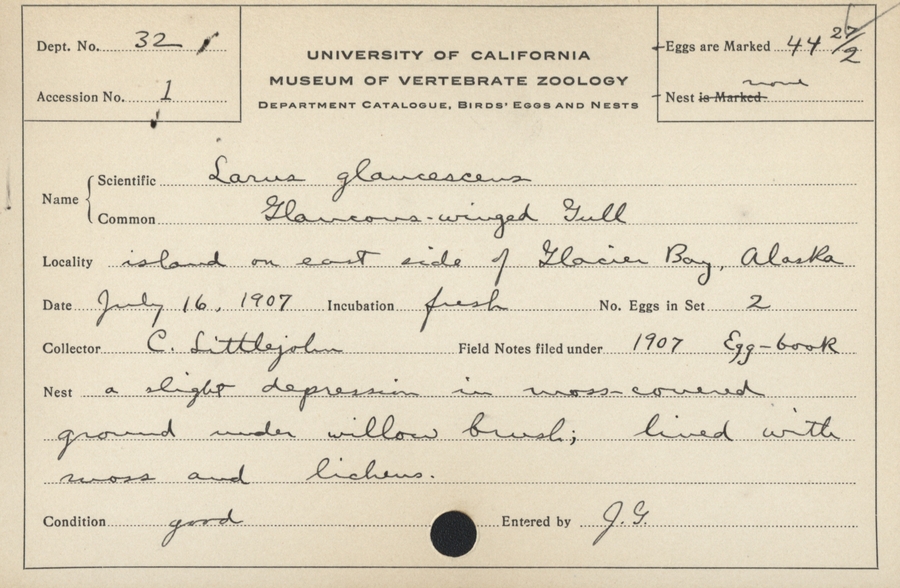 Dept. No. 32
UNIVERSITY OF CALIFORNIA
MUSEUM OF VERTEBRATE ZOOLOGY
DEPARTMENT CATALOGUE, BIRDS' EGGS AND NESTS
Eggs are Marked 44 27/2
Accession No. 1
Nest is Marked none
Name
Scientific Larus glaucescens
Common Glaucous-winged Gull
Locality island on east side of Glacier Bay, Alaska
Date July 16, 1907 Incubation fresh No. Eggs in Set 2
Collector C. Littlejohn Field Notes filed under 1907 Egg-book
Nest a slight depression in moss-covered
ground under willow brush; lined with
moss and lichens.
Condition good Entered by J.G.